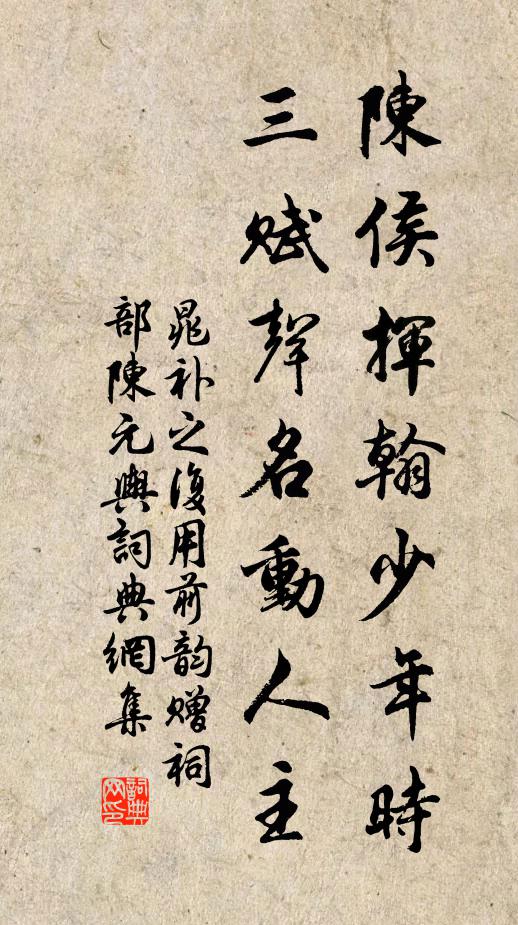 陳侯揮翰少年時
三賦聲名動人主
晁补之復用前韵赠祠
部陳元興詞典網集
詞典
网印